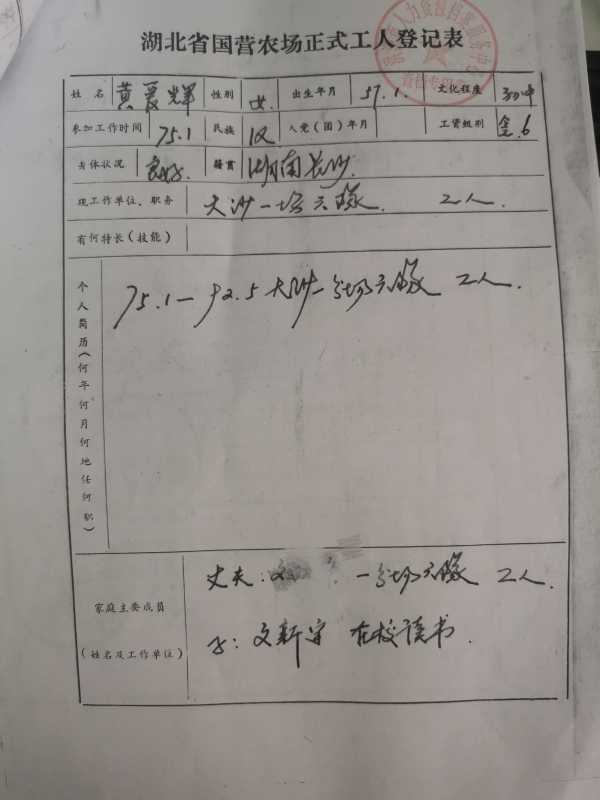 湖北省国营农场正式工人登记表
姓名 黄爱辉 性别 女 出生年月 57.1. 文化程度 初中
参加工作时间 75.1 民族 汉 入党(团)年月 工资级别 6
身体状况 良好 籍贯 湖南长沙
现工作单位、职务 大沙一场六队. 工人.
有何特长(技能)
个人简历(何年何月何地任何职)
75.1—92.5 大沙一分场六队 工人.
家庭主要成员
(姓名及工作单位)
丈夫: 文 一分场六队 工人.
子: 文新宇 在校读书.